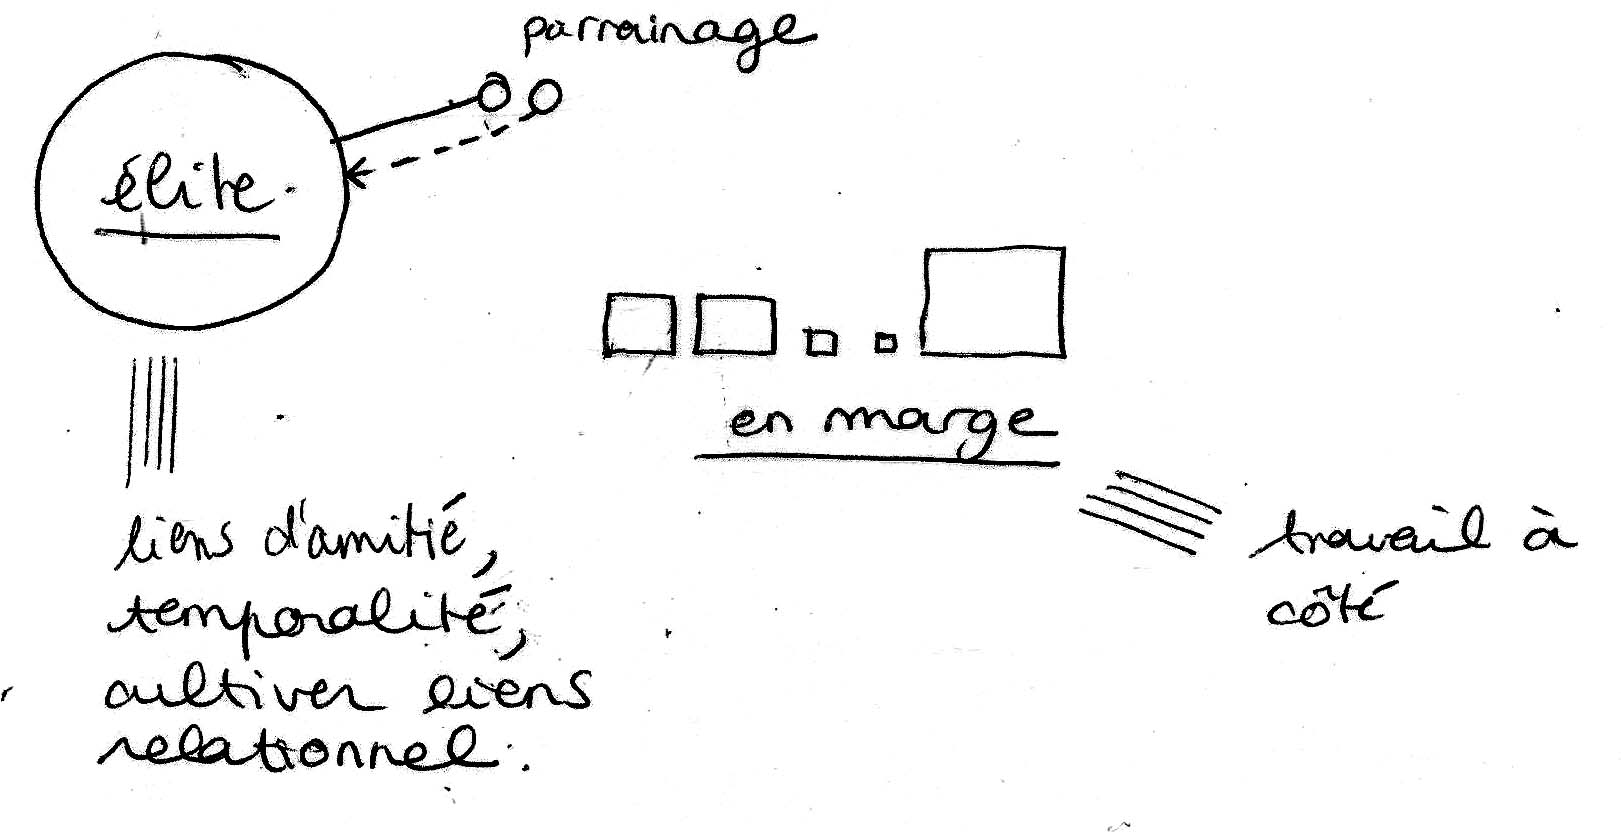 parrainage
élite.
en marge
travail à
côté
liens d'amitié,
temporalité,
cultiver liens
relationnel.